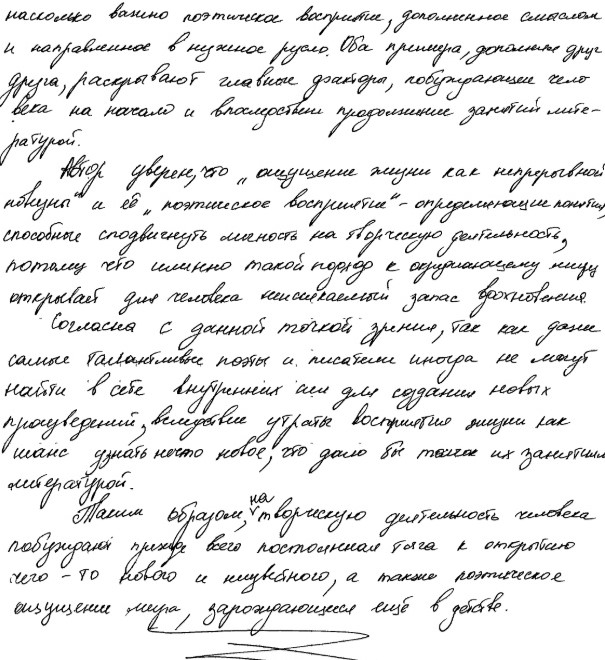 насколько важно поэтическое восприятие, дополненное смыслом
и направленное в нужное русло. Оба примера, дополняя друг
друга, раскрывают главные факторы, побуждающие чело
века на начало и впоследствии продолжение занятий лите-
ратурой.
Автор уверен, что „ощущение жизни как непрерывной
новизны" и её „поэтическое восприятие" - определяющие понятия,
способные сподвигнуть личность на творческую деятельность,
потому что именно такой подход к окружающему миру
открывает для человека неиссякаемый запас вдохновения.
Согласна с данной точкой зрения, так как даже
самые талантливые поэты и писатели иногда не могут
найти в себе внутренних сил для создания новых
произведений, вследствие утраты восприятия жизни как
шанс узнать нечто новое, что дало бы толчок их занятиям
литературой.
Таким образом, на творческую деятельность человека
побуждают прежде всего постоянная тяга к открытию
чего-то нового и неизвестного, а также поэтическое
ощущение мира, зарождающееся ещё в детстве.